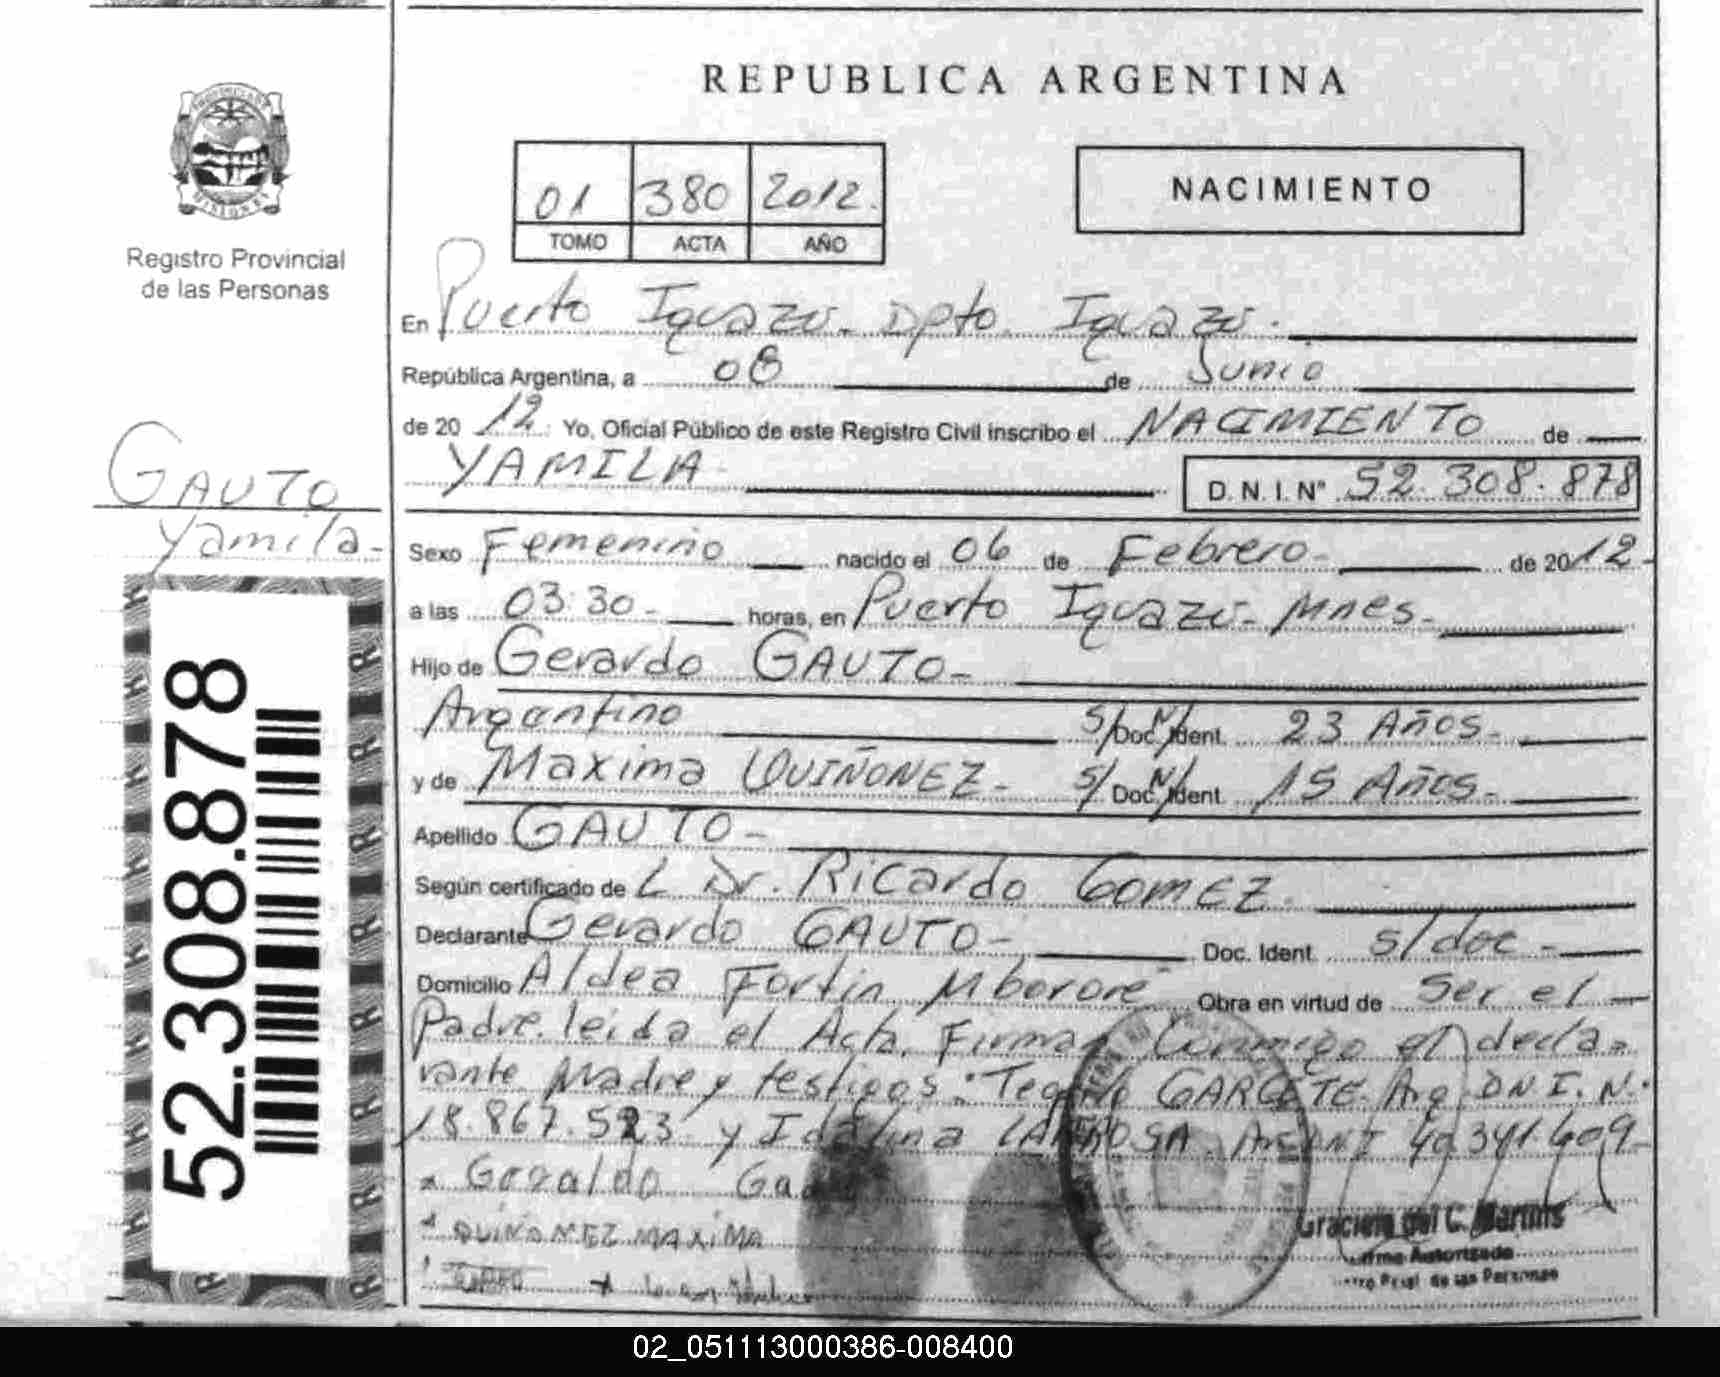 REPUBLICA ARGENTINA
PROVINCIA DE
MISIONES
Registro Provincial
de las Personas
01 380 2012.
TOMO ACTA AÑO
NACIMIENTO
En Puerto Iguazú - Dpto Iguazú.
República Argentina, a 08 de Junio
de 20 12. Yo, Oficial Público de este Registro Civil inscribo el NACIMIENTO de
YAMILA D.N.I. N° 52.308.878
GAUTO
Yamila-
Sexo Femenino nacido el 06 de Febrero- de 2012-
a las 03:30- horas, en Puerto Iguazú- Mnes-
Hijo de Gerardo GAUTO-
Argentino S/Doc. N/Ident. 23 Años-
y de Maxima QUIÑONEZ- S/Doc. N/Ident. 15 Años-
Apellido GAUTO-
Según certificado de L Dr. Ricardo GOMEZ.
Declarante Gerardo GAUTO- Doc. Ident. s/doc-
Domicilio Aldea Fortin Mborore Obra en virtud de Ser el
Padre. leida el Acta, Firman Conmigo el decla-
rante Madre y testigos: GARCETE. Arg. D.N.I. N.
18.867.523 y
Geraldo
QUIÑONEZ MAXIMA
Graciela del C. Martins
Firma Autorizada
de las Personas
52.308.878
02_051113000386-008400